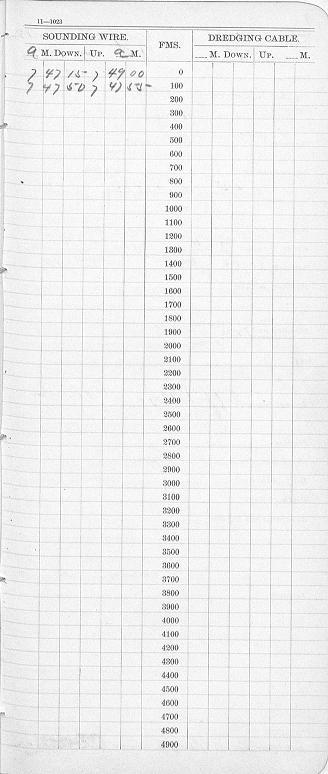 11—1023
SOUNDING WIRE. FMS. DREDGING CABLE.
a M. DOWN. UP. a M. ___ M. DOWN. UP. ___ M.
7 47 15 7 49 00 0
7 47 50 7 47 55 100
200
300
400
500
600
700
800
900
1000
1100
1200
1300
1400
1500
1600
1700
1800
1900
2000
2100
2200
2300
2400
2500
2600
2700
2800
2900
3000
3100
3200
3300
3400
3500
3600
3700
3800
3900
4000
4100
4200
4300
4400
4500
4600
4700
4800
4900